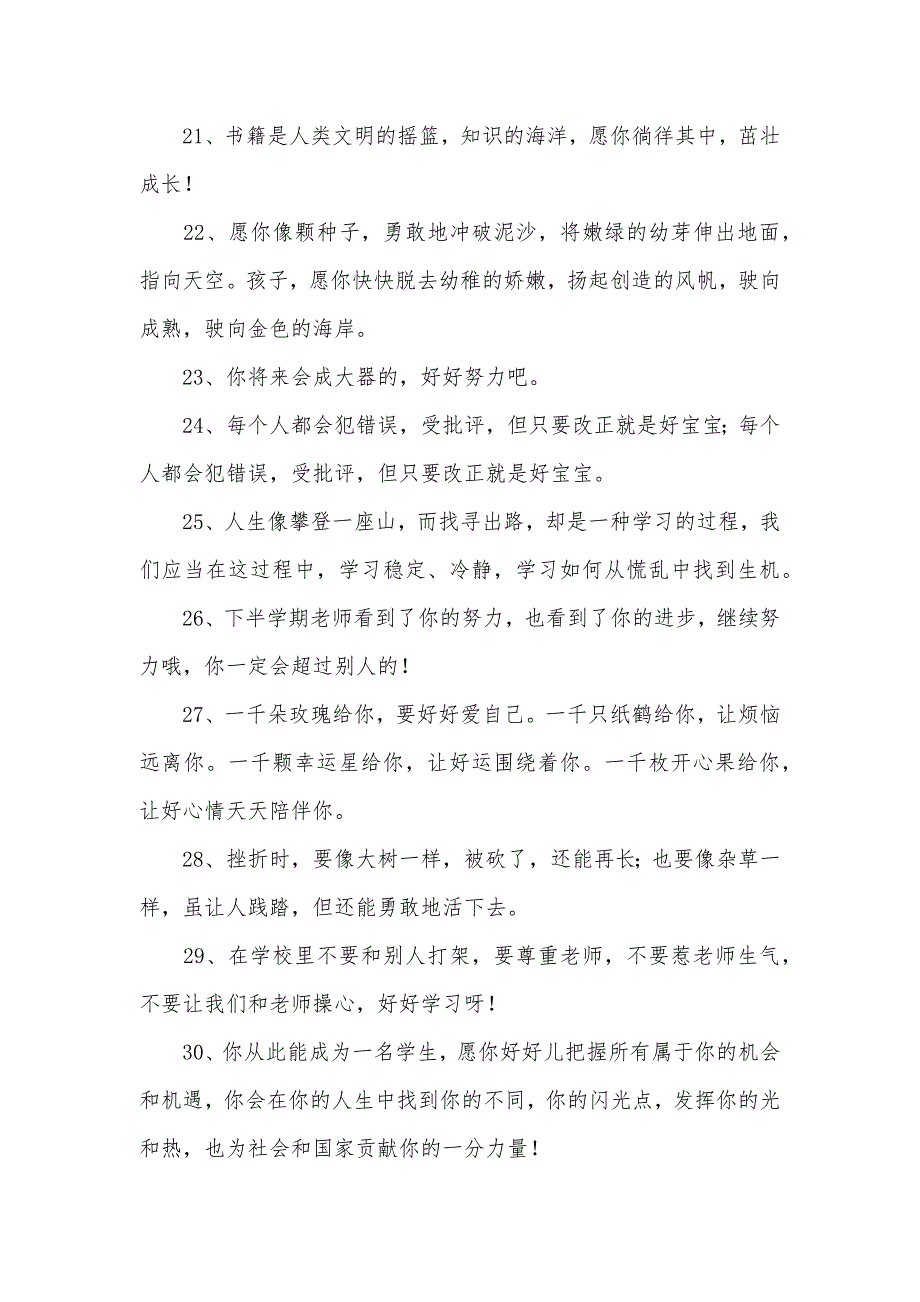 21、书籍是人类文明的摇篮，知识的海洋，愿你徜徉其中，茁壮
成长！
22、愿你像颗种子，勇敢地冲破泥沙，将嫩绿的幼芽伸出地面，
指向天空。孩子，愿你快快脱去幼稚的娇嫩，扬起创造的风帆，驶向
成熟，驶向金色的海岸。
23、你将来会成大器的，好好努力吧。
24、每个人都会犯错误，受批评，但只要改正就是好宝宝；每个
人都会犯错误，受批评，但只要改正就是好宝宝。
25、人生像攀登一座山，而找寻出路，却是一种学习的过程，我
们应当在这过程中，学习稳定、冷静，学习如何从慌乱中找到生机。
26、下半学期老师看到了你的努力，也看到了你的进步，继续努
力哦，你一定会超过别人的！
27、一千朵玫瑰给你，要好好爱自己。一千只纸鹤给你，让烦恼
远离你。一千颗幸运星给你，让好运围绕着你。一千枚开心果给你，
让好心情天天陪伴你。
28、挫折时，要像大树一样，被砍了，还能再长；也要像杂草一
样，虽让人践踏，但还能勇敢地活下去。
29、在学校里不要和别人打架，要尊重老师，不要惹老师生气，
不要让我们和老师操心，好好学习呀！
30、你从此能成为一名学生，愿你好好儿把握所有属于你的机会
和机遇，你会在你的人生中找到你的不同，你的闪光点，发挥你的光
和热，也为社会和国家贡献你的一分力量！